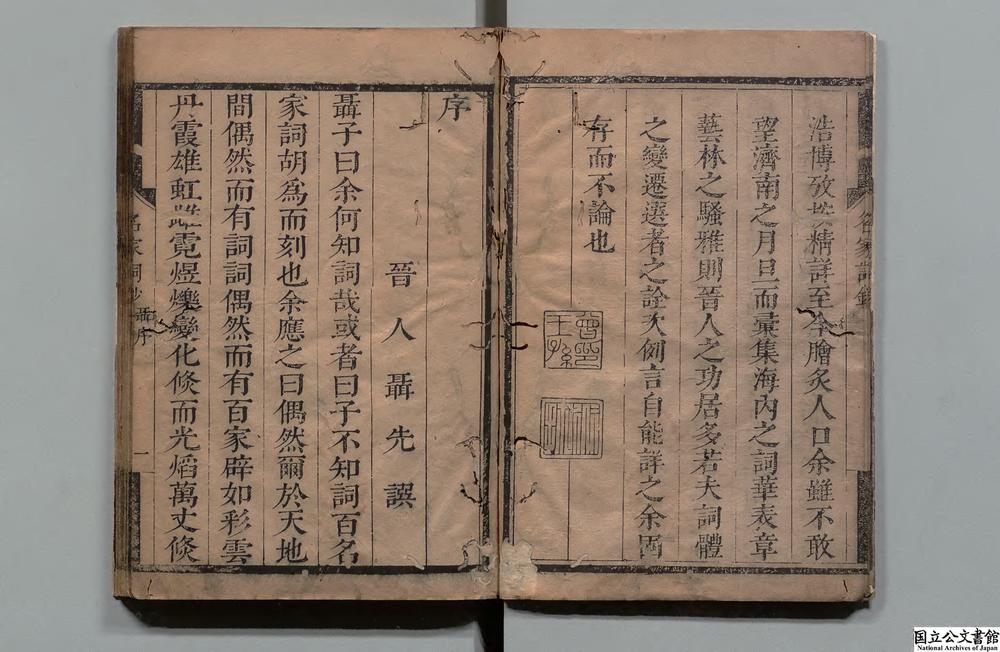 浩博攷㨿精詳至今膾炙人口余雖不敢
望濟南之月旦而彙集海內之詞華表章
藝林之騷雅則晉人之功居多若夫詞體
之變遷選者之詮次例言自能詳之余固
存而不論也
序
晉人聶先譔
聶子曰余何知詞哉或者曰子不知詞百名
家詞胡為而刻也余應之曰偶然爾於天地
間偶然而有詞詞偶然而有百家辟如彩雲
丹霞雄虹雌霓煜爍變化倏而光熖萬丈倏
名家詞鈔 聶序
一
国立公文書館
National Archives of Japan